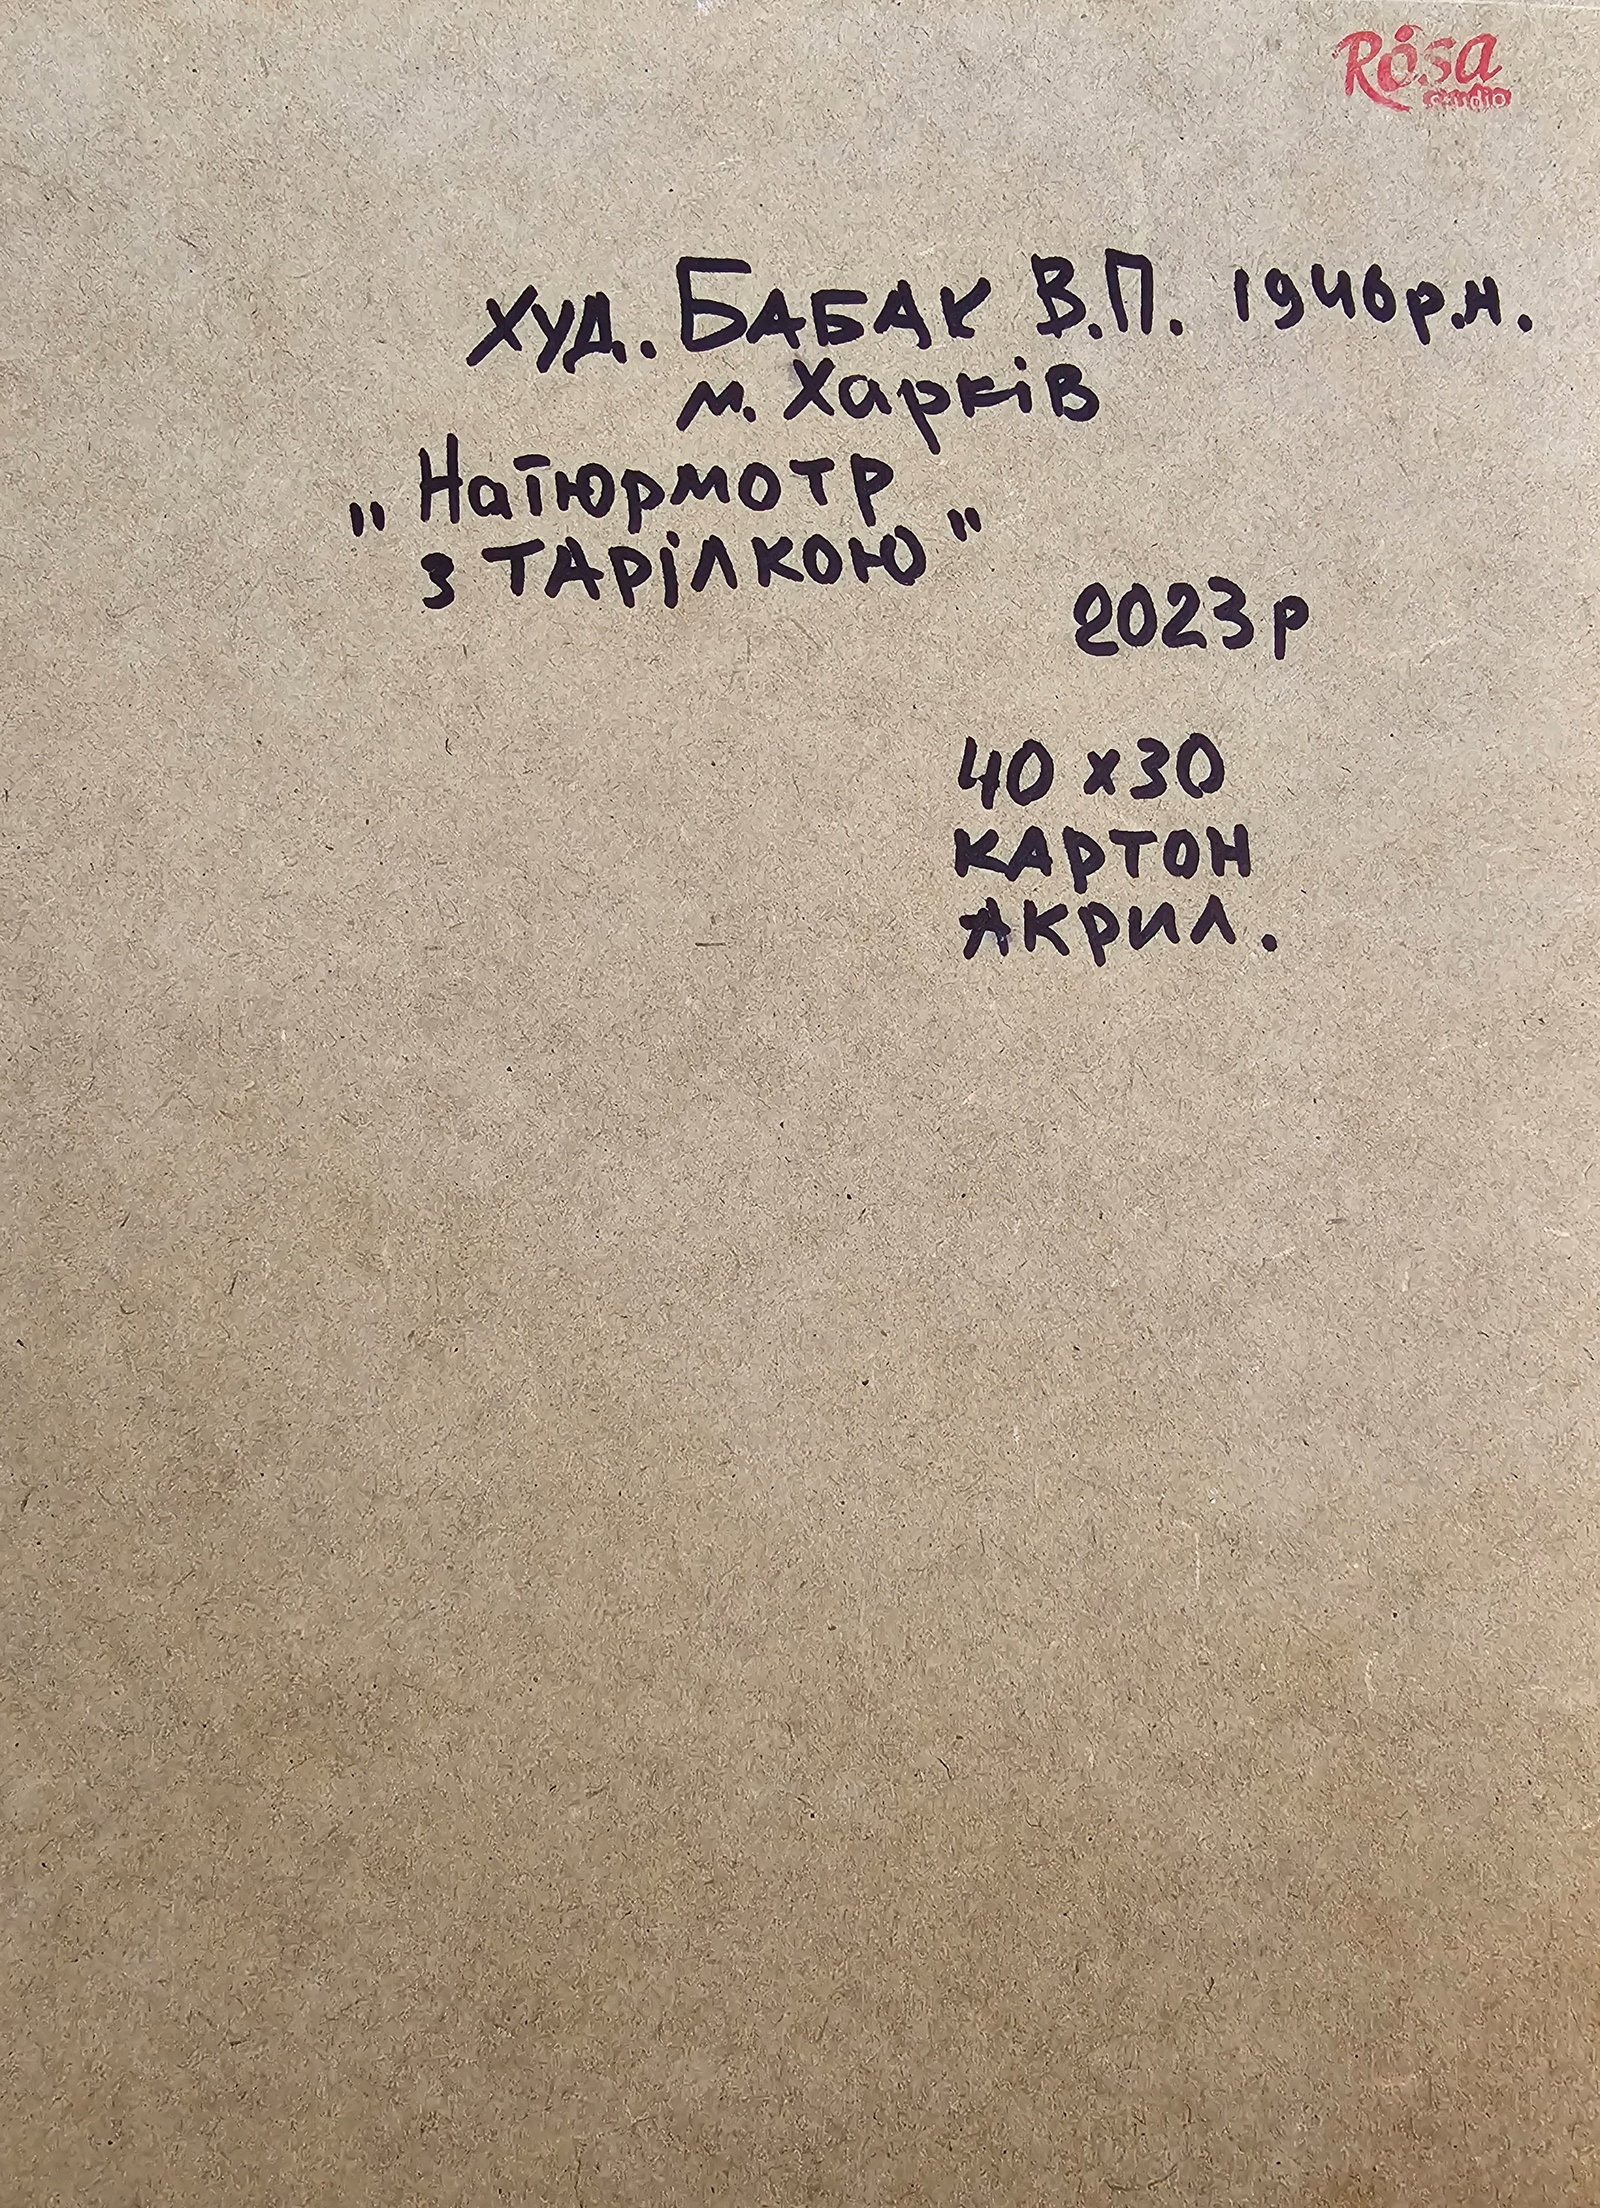 Rosa
studio
худ. БАБАК В.П. 1946р.н.
м. Харків
„Натюрмотр
з ТАРІЛКОЮ"
2023р
40x30
КАРТОН
АКРИЛ.